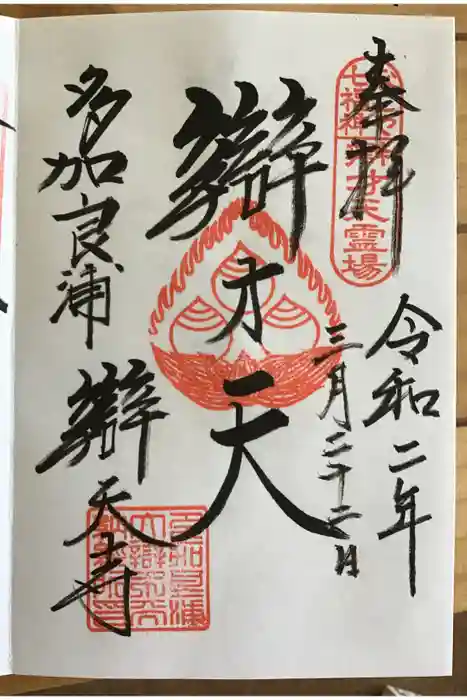 奉拝
令和二年
三月二十二日
辯才天
多加良浦
辯天寺
七福神
辯才天霊場